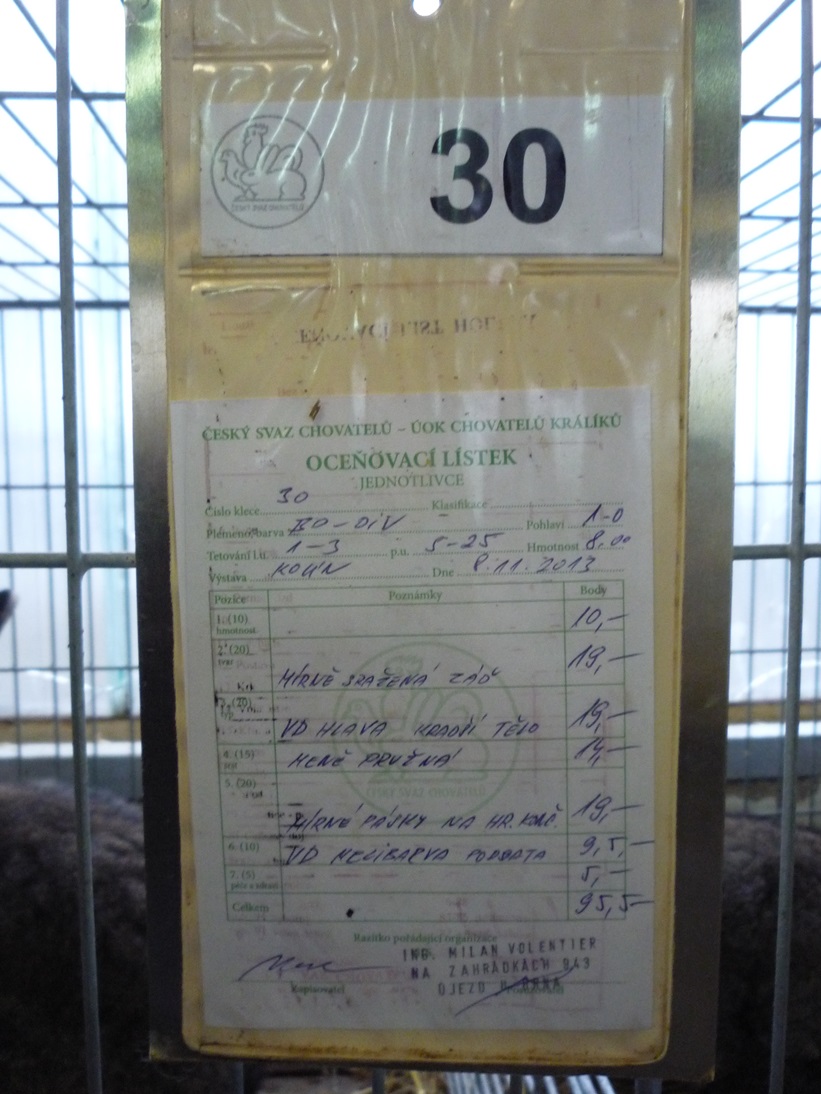 30
ČESKÝ SVAZ CHOVATELŮ
ČESKÝ SVAZ CHOVATELŮ – ÚOK CHOVATELŮ KRÁLÍKŮ
OCEŇOVACÍ LÍSTEK
JEDNOTLIVCE
Číslo klece 30 Klasifikace –
Plemeno, barva BO-DIV Pohlaví 1-0
Tetování l.u. 1-3 p.u. 5-25 Hmotnost 8,00
Výstava KOLÍN Dne 8.11.2013
Pozice Poznámky Body
1. (10) hmotnost 10,–
2. (20) tvar MÍRNĚ SRAŽENÁ ZÁĎ 19,–
3. (20) typ VD HLAVA KRATŠÍ TĚLO 19,–
4. (15) MÉNĚ PRUŽNÁ 14,–
5. (20) MÍRNÉ PÁSKY NA HR. KONČ. 19,–
6. (10) VD MEZIBARVA PODSADA 9,5,–
7. (5) péče a zdraví 5,–
Celkem 95,5–
ČESKÝ SVAZ CHOVATELŮ
Razítko pořádající organizace
ING. MILAN VOLENTIER
NA ZAHRÁDKÁCH 943
ÚJEZD U BRNA
Zapisovatel